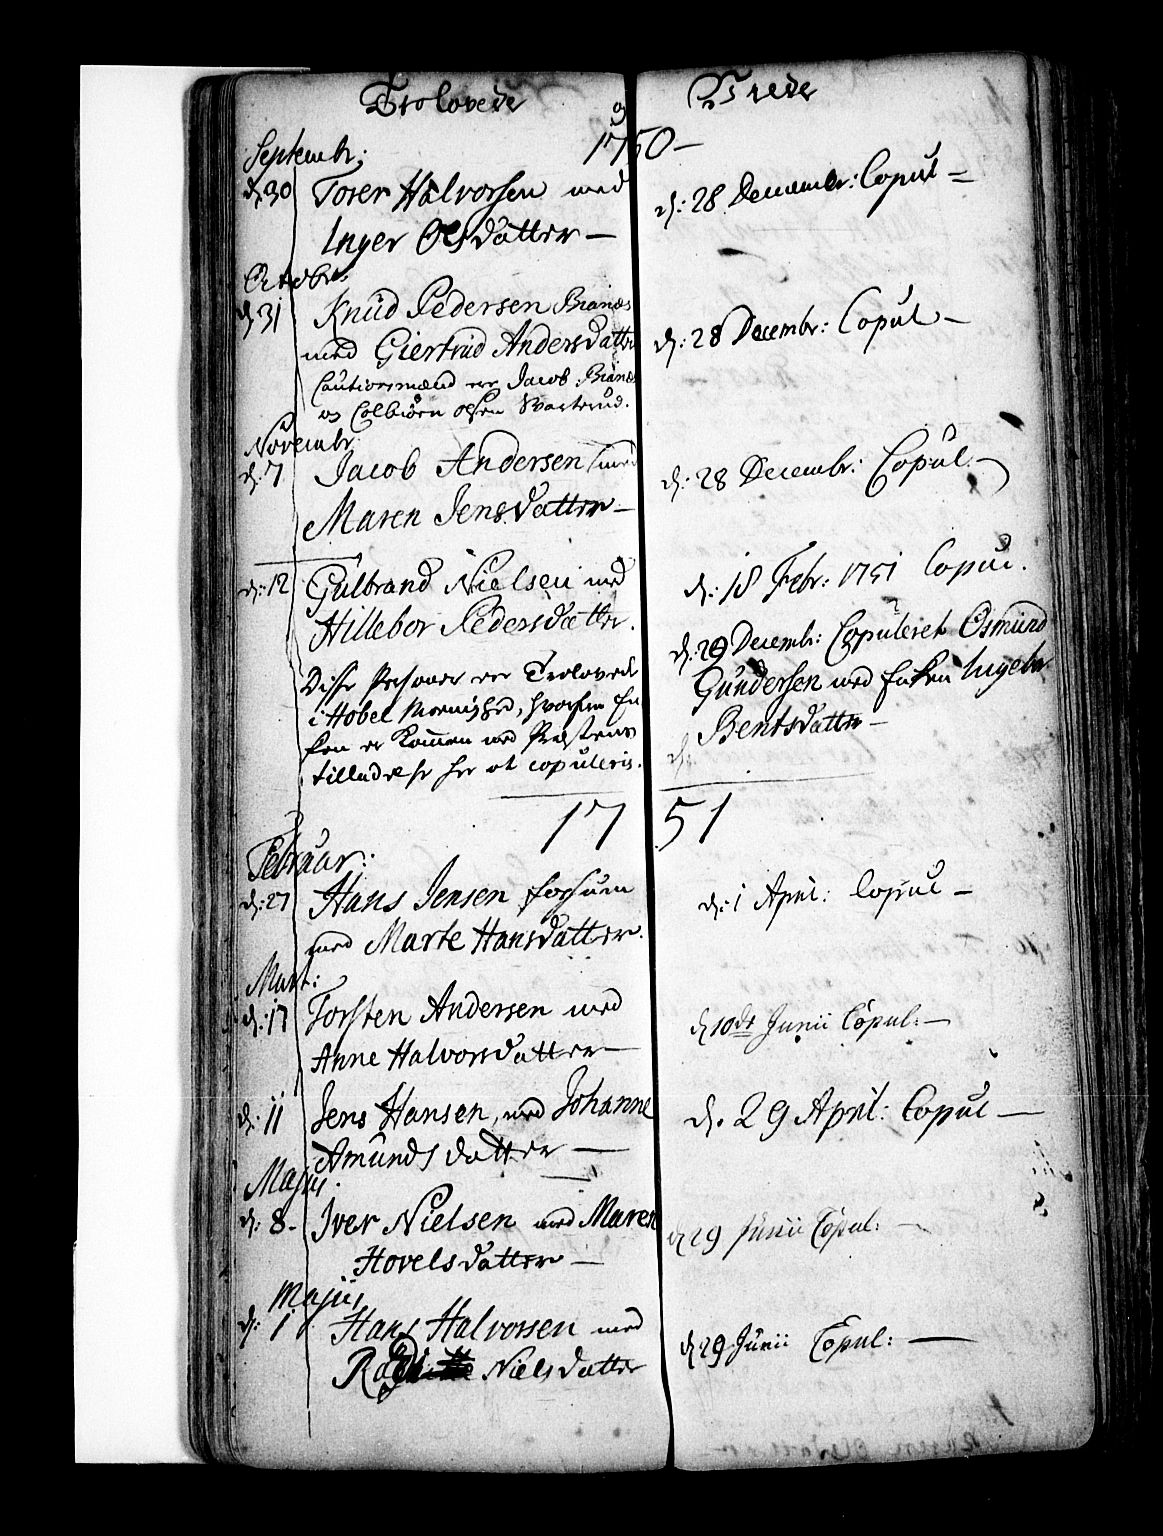 Trolovede og Viede
1750 -
Septembr:
d: 30 Torer Halvorsen med
Inger Olsdatter -
d: 28 Decembr: Copul -
Octobr:
d: 31 Knud Pedersen Biønæs
med Giertrud Andersdatter
Cautionsmænd ere Jacob Biønæs
og Colbiørn Olsen Svarterud.
d: 28 Decembr: Copul -
Novembr:
d: 7 Jacob Andersen med
Maren Jensdatter -
d: 28 Decembr: Copul. -
d: 12 Gulbrand Nielsen med
Hillebor Pedersdatter.
d: 18 Febr: 1751 Copul.
Disse Personer ere Trolovede
i Hobel Meenighed, hvorfra En
ken er kommen med Præstens
tilladelse her at copuleris.
d: 29 Decembr: Copuleret Osmund
Gundersen med Enken Ingebor
Bentsdatter -
d:
1751
Februar:
d: 27 Hans Jensen
med Marte Hansdatter.
d: 1 April: Copul -
Mart:
d: 17 Torsten Andersen med
Anne Halvorsdatter -
d 10de Junii Copul: -
d: 11 Jens Hansen, med Johanne
Amundsdatter -
d. 29 April: Copul -
Majus.
d: 8 - Iver Nielsen med Maren
Hovelsdatter -
d 29 Junii Copul: -
Majus,
d: 1 Hans Halvorsen med
Nielsdatter
d 29 Junii Copul: -